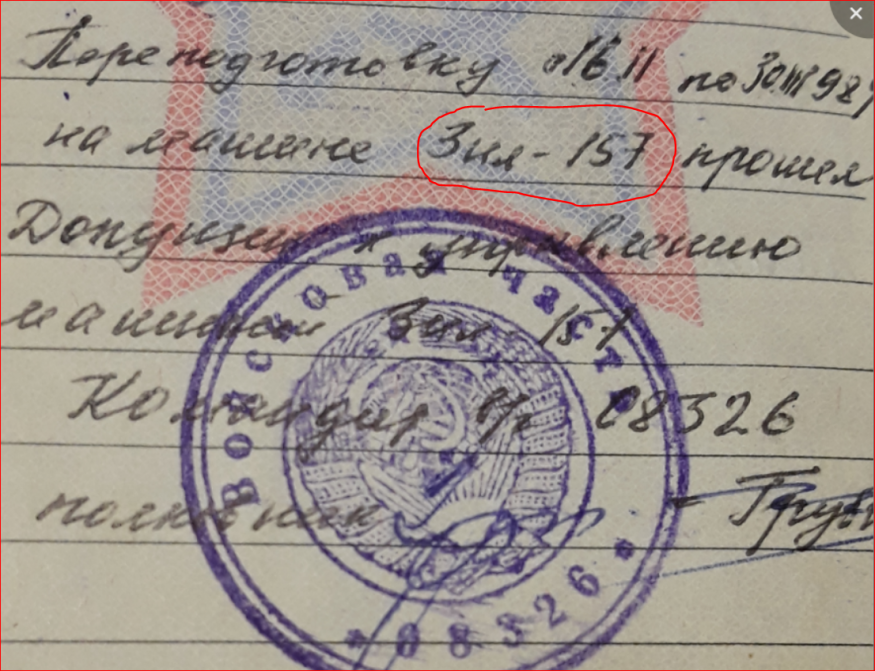 Переподготовку с 16 II по 30 III 198
на машине Зил-157 прошел
Допущен к управлению
машиной Зил 157
Командир в/ч 08326
полковник
Войсковая часть
* 08326 *